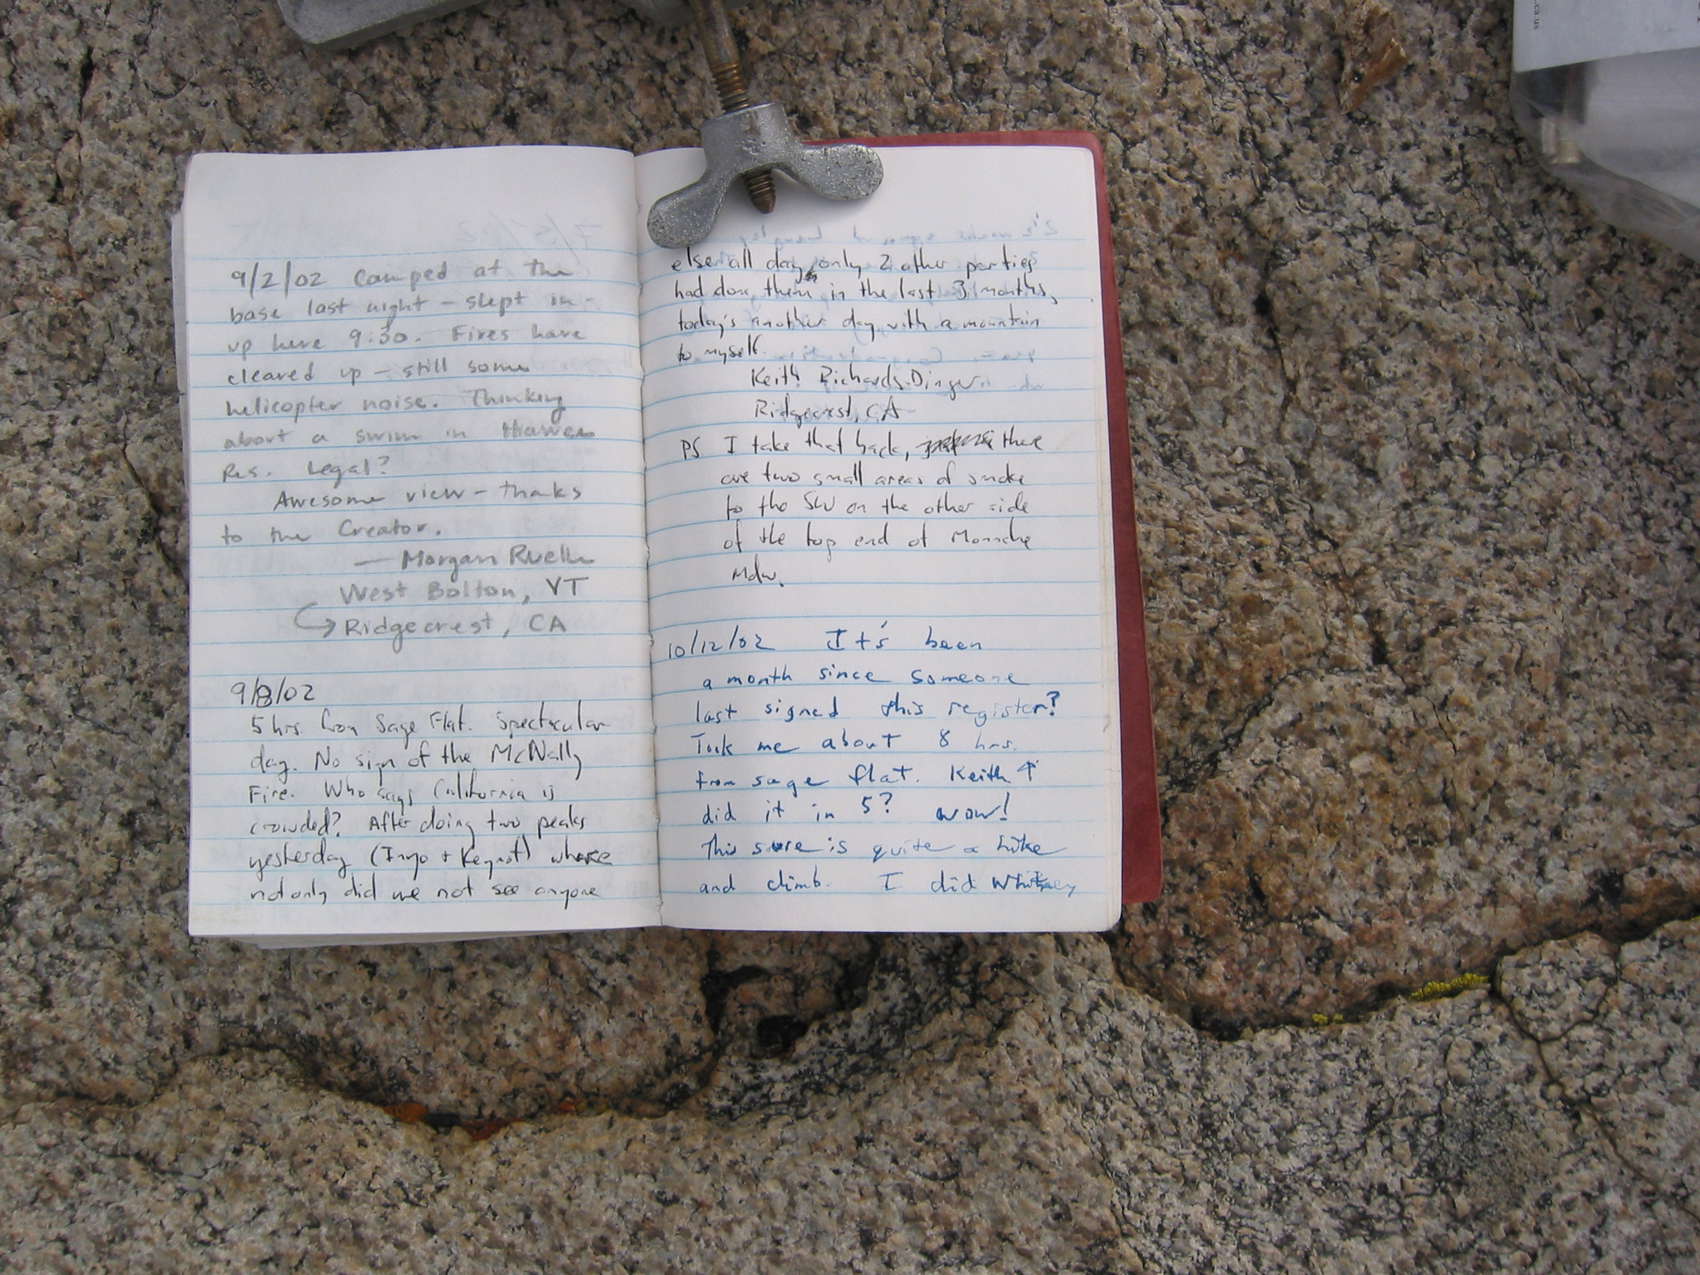 9/2/02 Camped at the
base last night – slept in –
up here 9:30. Fires have
cleared up – still some
helicopter noise. Thinking
about a swim in Haiwee
Res. Legal?
Awesome view – thanks
to the Creator.
— Morgan Ruelle
West Bolton, VT
Ridgecrest, CA
9/8/02
5 hrs. from Sage Flat. Spectacular
day. No sign of the McNally
Fire. Who says California is
crowded? After doing two peaks
yesterday (Inyo + Keynot) where
not only did we not see anyone
else all day, only 2 other parties
had done them in the last 3 months,
today's another day with a mountain
to myself.
Keith Richards-Dinger
Ridgecrest, CA
PS I take that back, there
are two small areas of smoke
to the SW on the other side
of the top end of Monache
Mdw.
10/12/02 It's been
a month since someone
last signed this register?
Took me about 8 hrs.
from sage flat. Keith ↑
did it in 5? wow!
This sure is quite a hike
and climb. I did Whitney